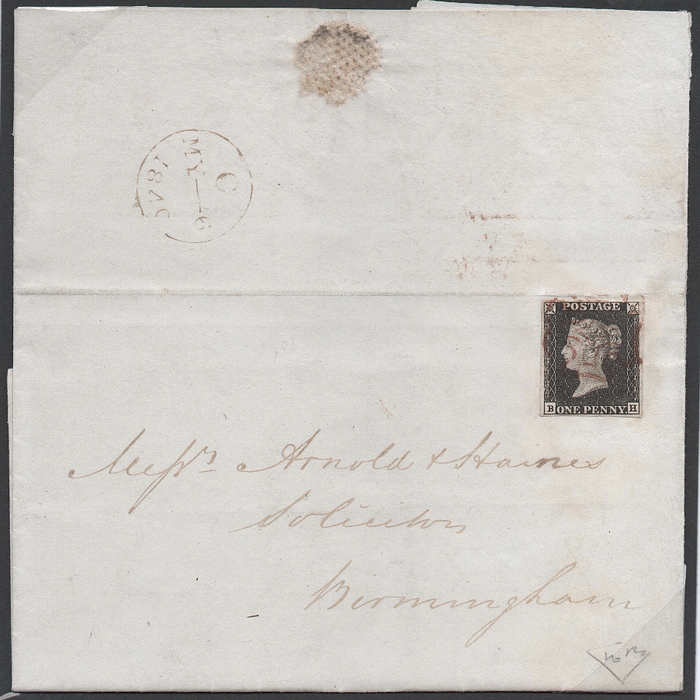 C
MY 6
1840
POSTAGE
B ONE PENNY H
Messrs Arnold & Haines
Solicitors
Birmingham